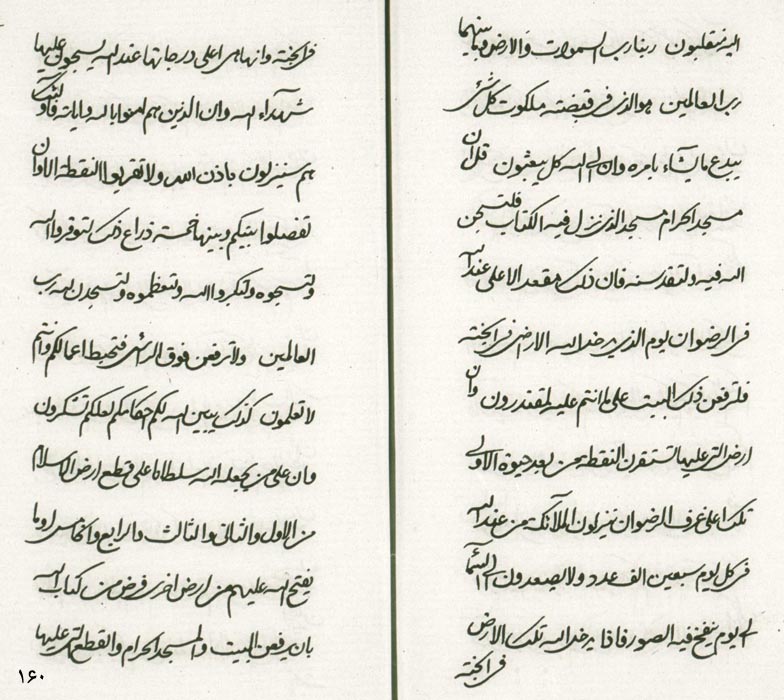 اليه تنقلبون ربنا رب السموات والارض وما بينهما
رب العالمين هو الذي في قبضته ملكوت كل شئ
يبدع ما يشاء بامره وان الى الله كل يبعثون قل ان
مسجد الحرام مسجد الذي نزل فيه الكتاب فلتسجدن
الله فيه ولتقدسنه فان ذلك مقعد الاعلى عند الله
في الرضوان يوم الذي يدخل الله الارض في الجنة
فلترفعن ذلك البيت على ما انتم عليه لمقتدرون وان
ارض التي عليها تستقرن النقطة من بعد حيوة الاولى
تلك اعلى غرف الرضوان ينزلون الملآئكة من عند الله
في كل يوم سبعين الف عدد ولا يصعدون الى السماء
الى يوم ينفخ فيه الصور فاذا يدخل الله تلك الارض
في الجنة
في الجنة وانها هي اعلى درجاتها عند الله يسجدون عليها
شهدآء الله وان الذين هم امنوا بالله واياته فاولئك
هم سينزلون باذن الله ولا تقربوا النقطة الا وان
تفصلوا بينكم وبينها خمسة ذراع ذلك لتوقروا الله
ولتسبحوه ولتكبروا الله ولتعظموه ولتسجدن لله رب
العالمين ولا ترفعن فوق الرأس فتحبط اعمالكم وانتم
لا تعلمون كذلك يبين الله لكم احكامكم لعلكم تشكرون
وان على من يجعله الله سلطانا على قطع ارض الاسلام
من الاول والثاني والثالث والرابع والخامس او ما
يفتح الله عليهم من ارض اخرى فرض من كتاب الله
بان يرفعن البيت والمسجد الحرام والقطع التي عليها
١۶٠